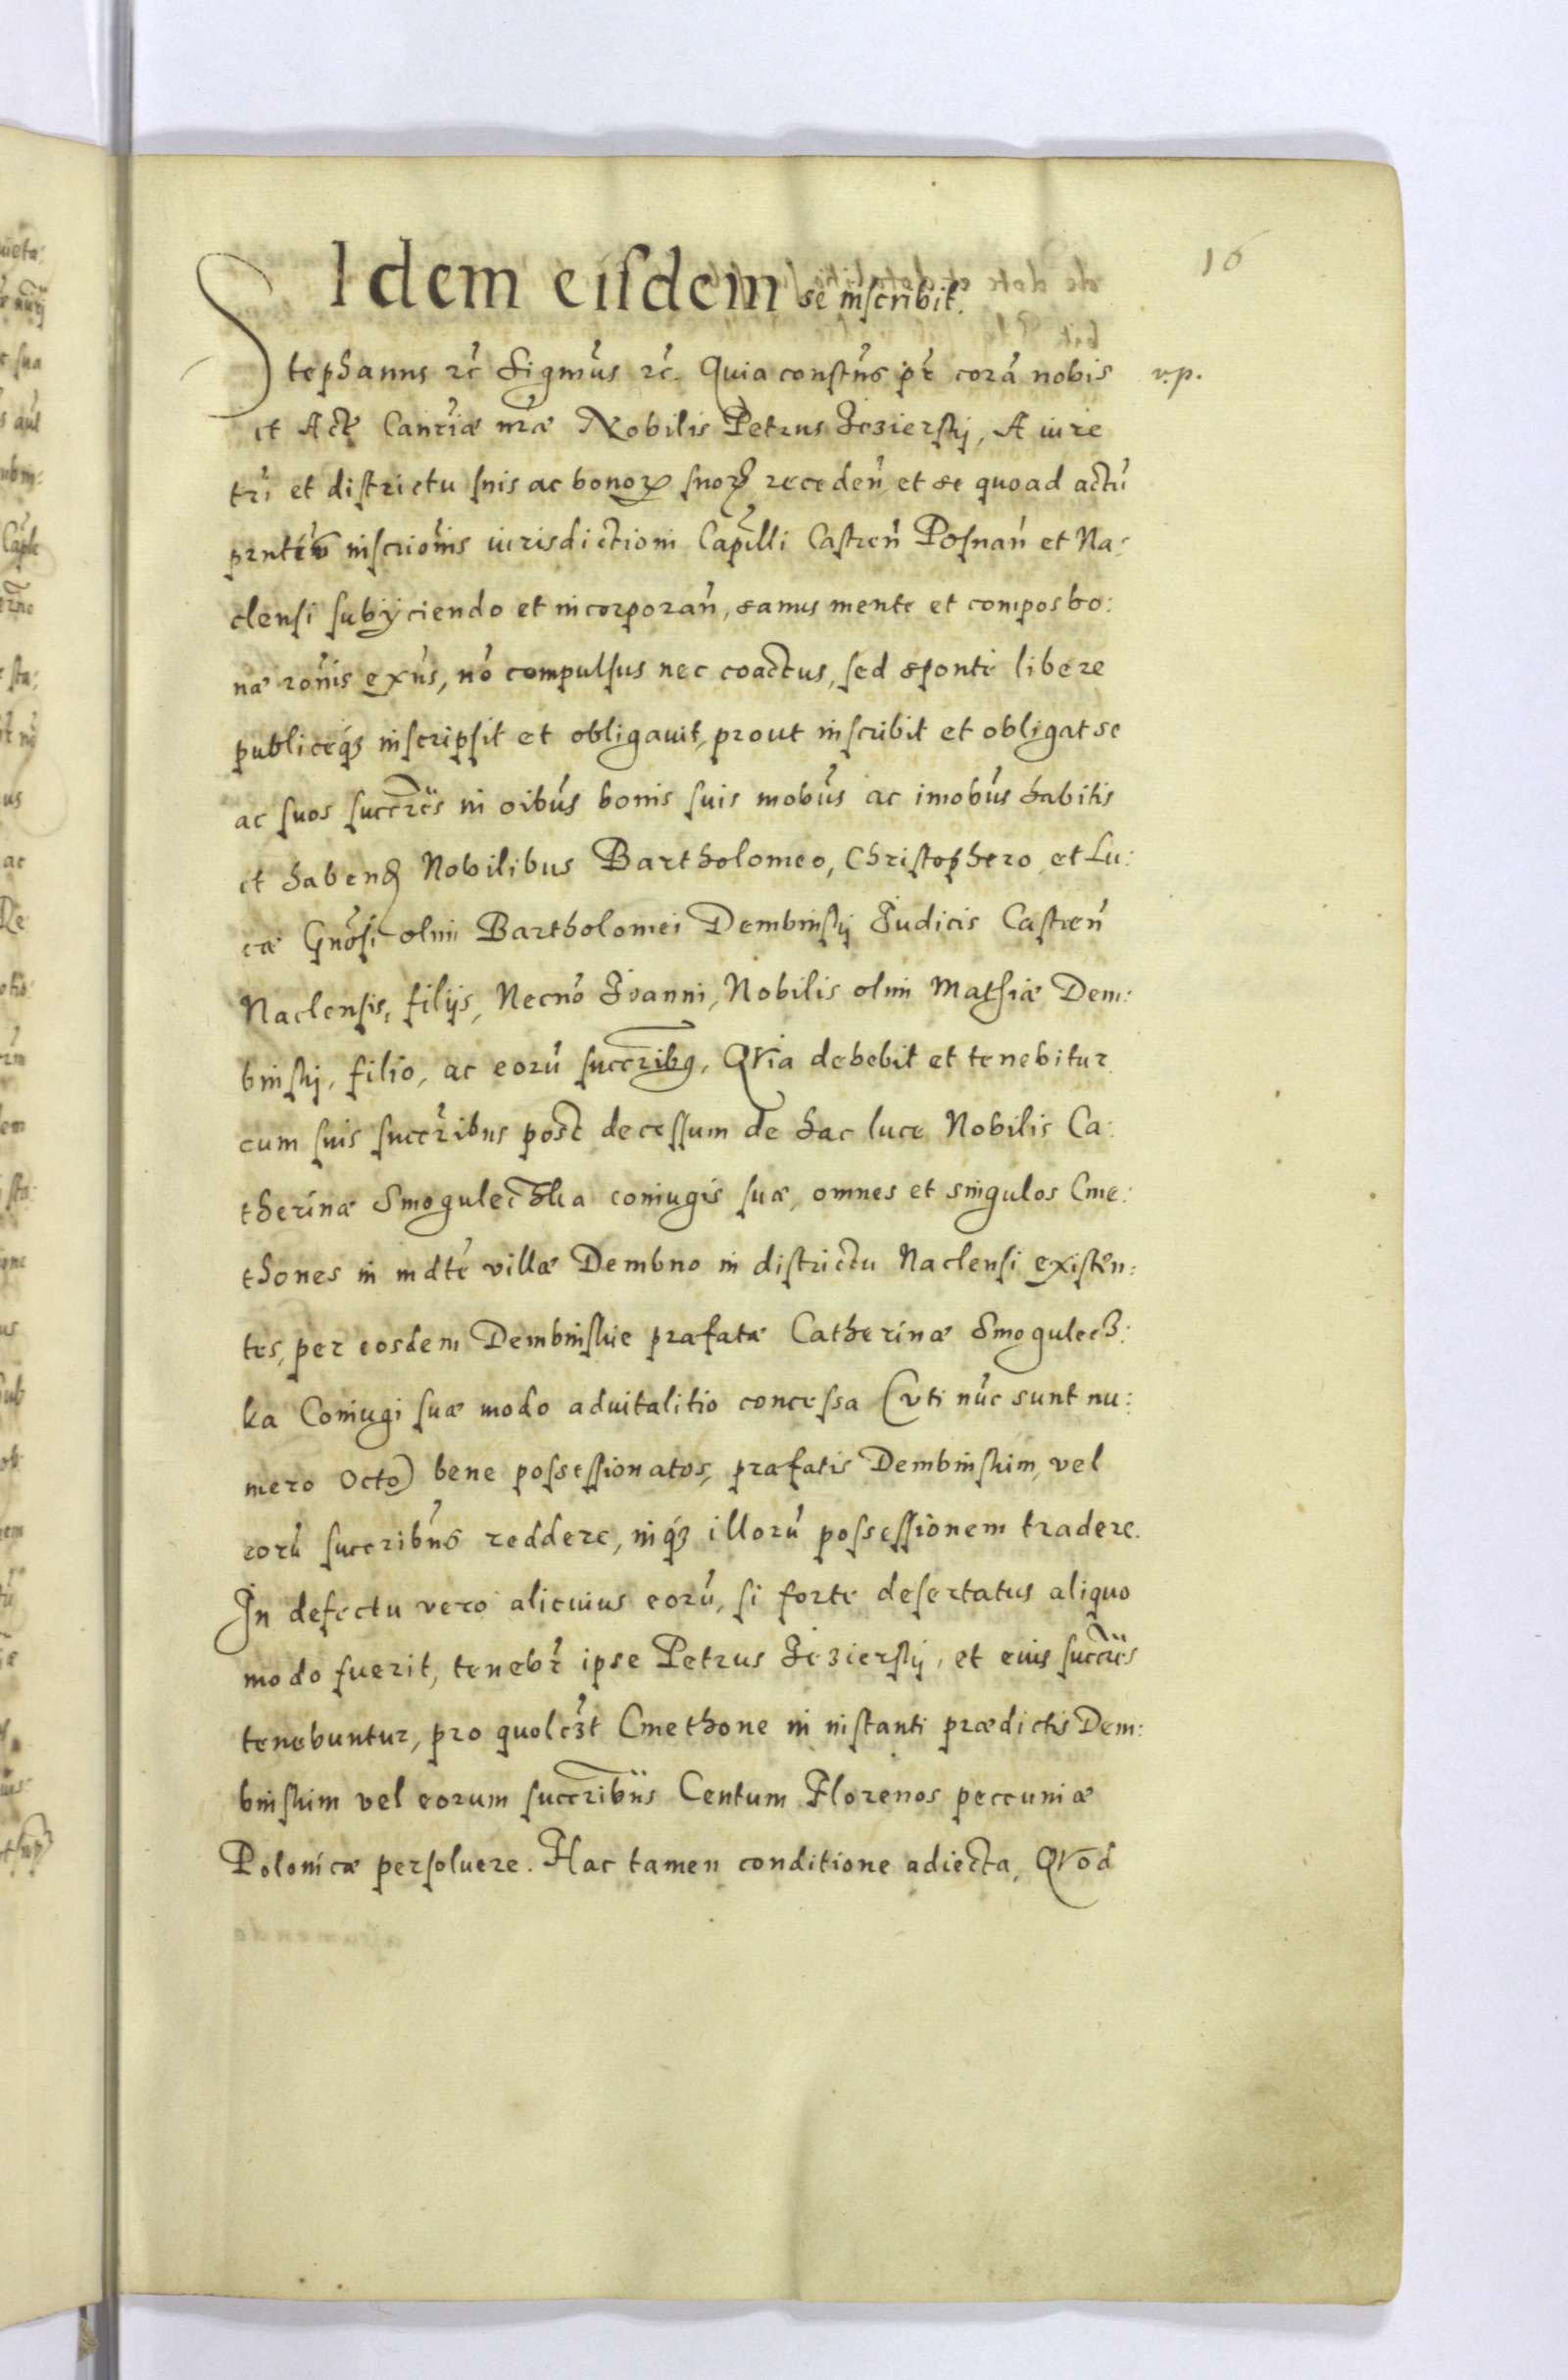 16
Idem eisdem se inscribit.
Stephanus rc̃ Sigm̃us rc̃. Quia constñs pr̃ corã nobis v.p.
et Act Canr̃iæ nr̃æ Nobilis Petrus Jezierskj, A iure
trĩ et districtu suis ac bonoꝝ suoꝝ receden̄ et se quoad actũ
prnt̃is inscriõnis iurisdictioni Cap̃lli Castreñ Posnañ et Na:
clensi subijciendo et incorporañ, sanus mente et compos bo:
næ rõnis exñs, nõ compulsus nec coactus, sed sponte libere
publiceqꝫ inscripsit et obligauit, prout inscribit et obligat se
ac suos succr̃es in oĩbus bonis suis mobũs ac imobũs habitis
et habenꝺ Nobilibus Bartholomeo, Christophero, et Lu:
cæ Gnõsi olim Bartholomei Dembinskj Judicis Castreñ
Naclensis, filijs, Necnõ Joanni, Nobilis olim Mathiæ Dem:
binskj, filio, ac eorũ succr̃ibꝯ, QVia debebit et tenebitur
cum suis succr̃ibus post decessum de hac luce Nobilis Ca:
therinæ Smoguleczka coniugis suæ, omnes et singulos Cme:
thones in mdte villæ Dembno in districtu Naclensi existen:
tes, per eosdem Dembinskie præfatæ Catherinæ Smogulecz:
ka Coniugi suæ modo aduitalitio concessa (vti nũc sunt nu:
mero Octo) bene possessionatos, præfatis Dembinskim, vel
eorũ succribũs reddere, inqꝫ illorũ possessionem tradere.
In defectu vero alicuius eorũ, si forte desertatus aliquo
modo fuerit, tenebr̃ ipse Petrus Jezierskj, et eius succr̃es
tenebuntur, pro quolꝫt Cmethone in instanti prædictis Dem:
binskim vel eorum succr̃ibus Centum Florenos peccuniæ
Polonicæ persoluere. Hac tamen conditione adiecta, QVod